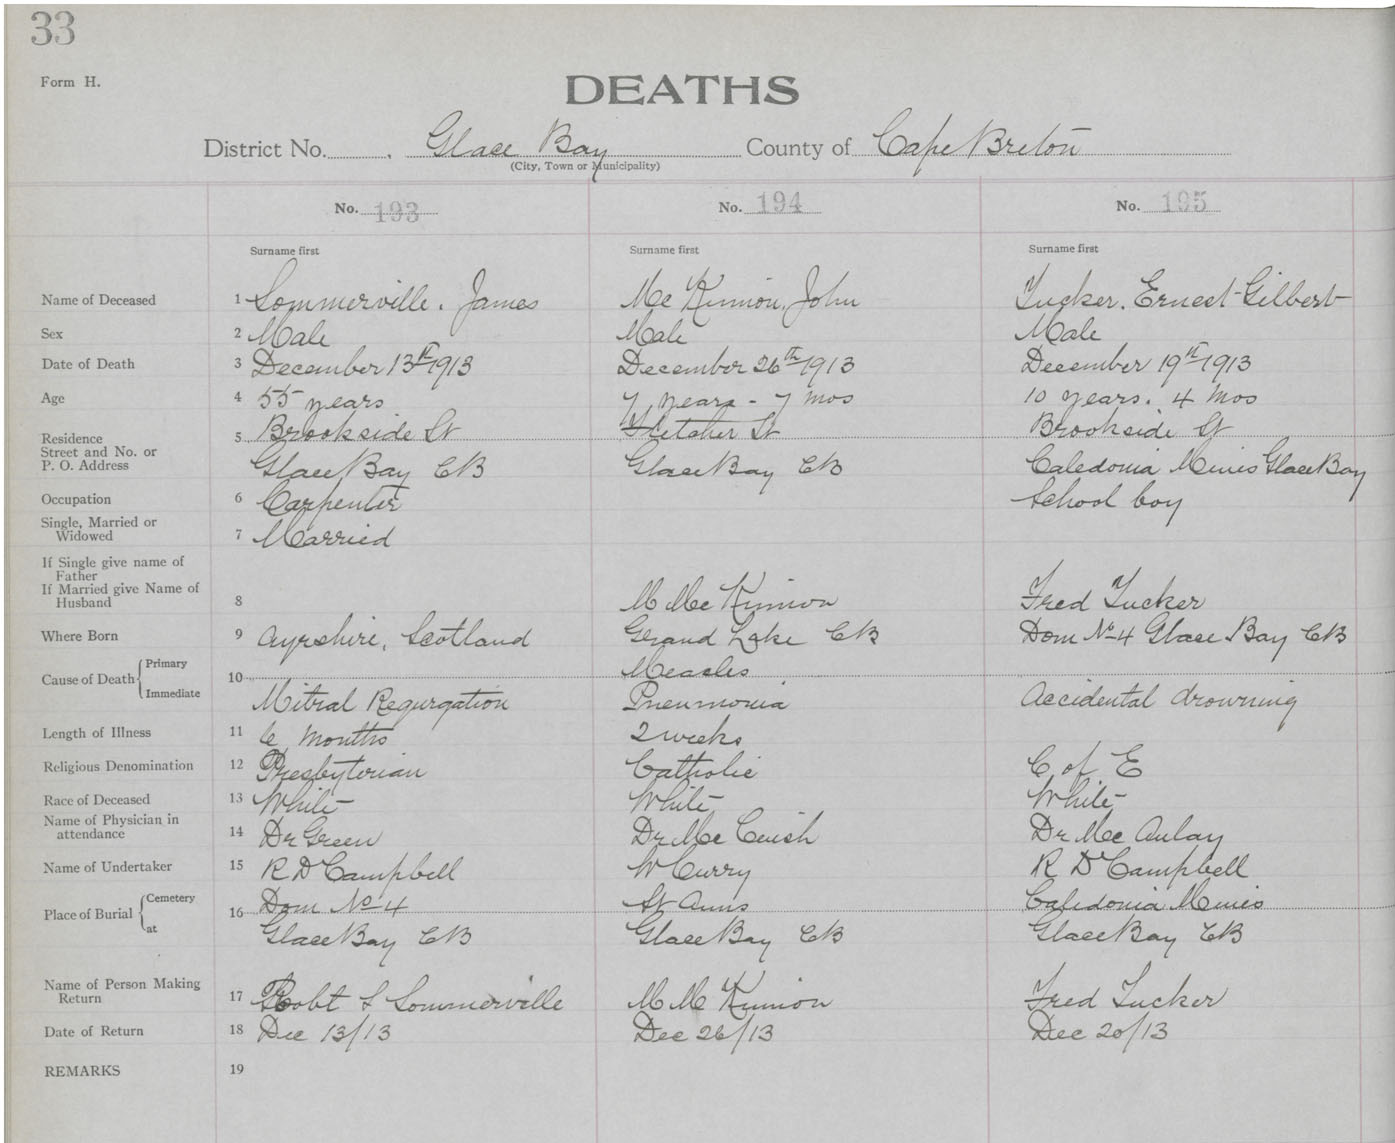 33
Form H.
DEATHS
District No. Glace Bay County of Cape Breton
(City, Town or Municipality)
No. 193 No. 194 No. 195
Surname first Surname first Surname first
Name of Deceased 1 Sommerville. James McKinnon, John Tucker. Ernest Gilbert
Sex 2 Male Male Male
Date of Death 3 December 13th 1913 December 26th 1913 December 19th 1913
Age 4 55 years 7 years - 7 mos 10 years. 4 mos
Residence 5 Brookside St Fletcher St Brookside St
Street and No. or
P. O. Address Glace Bay CB Glace Bay CB Caledonia Mines Glace Bay
Occupation 6 Carpenter School boy
Single, Married or
Widowed 7 Married
If Single give name of
Father
If Married give Name of
Husband 8 M McKinnon Fred Tucker
Where Born 9 Ayrshire, Scotland Grand Lake CB Dom No 4 Glace Bay CB
Cause of Death Primary 10 Measles
Immediate Mitral Regurgation Pneumonia Accidental drowning
Length of Illness 11 6 months 2 weeks
Religious Denomination 12 Presbyterian Catholic C of E
Race of Deceased 13 White White White
Name of Physician in
attendance 14 Dr Green Dr McCuish Dr McAulay
Name of Undertaker 15 R D Campbell W Curry R D Campbell
Place of Burial Cemetery 16 Dom No 4 St Anns Caledonia Mines
at Glace Bay CB Glace Bay CB Glace Bay CB
Name of Person Making
Return 17 Robt S Sommerville M McKinnon Fred Tucker
Date of Return 18 Dec 13/13 Dec 26/13 Dec 20/13
REMARKS 19